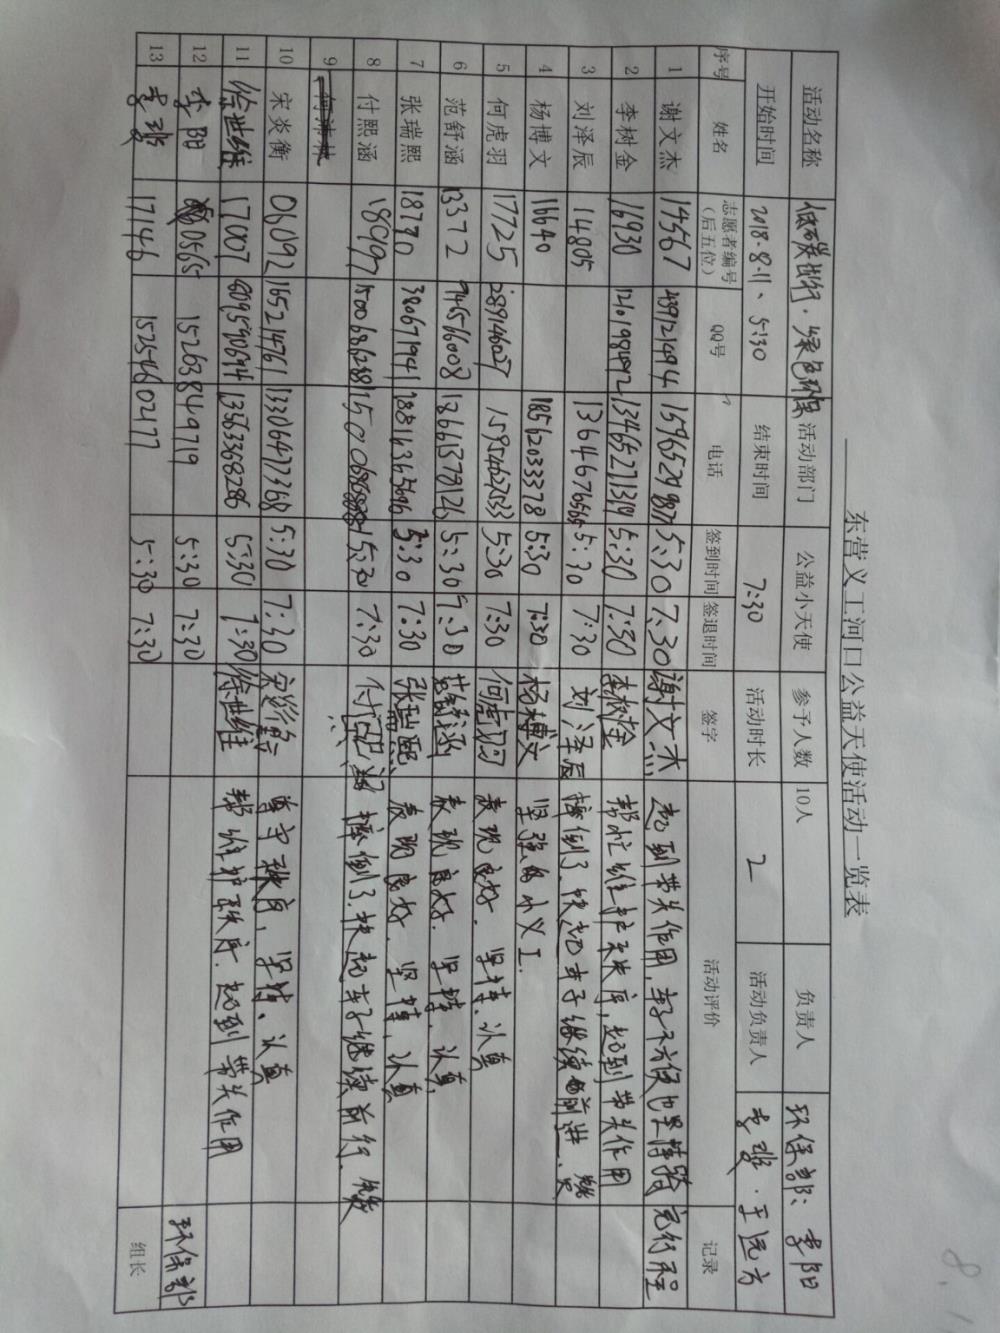 东营义工河口公益天使活动一览表
活动名称 低碳出行、绿色环保 活动部门 公益小天使 参予人数 10人 负责人 环保部：李阳
开始时间 2018.8.11、5:30 结束时间 7:30 活动时长 2 活动负责人
序号 姓名 志愿者编号（后五位） QQ号 电话 签到时间 签退时间 签字 活动评价 记录
1 谢文杰 14567 5:30 7:30 谢文杰 起到带头作用，车子不方便也坚持骑完行程
2 李树金 16930 13465271319 5:30 7:30 李树金 帮忙维护秩序，起到带头作用
3 刘泽辰 14805 13646476566 5:30 7:30 刘泽辰 摔倒了扶起车子继续前进
4 杨博文 16640 18562033378 5:30 7:30 杨博文 坚强的小义工.
5 何虎羽 17725 289146027 15954627533 5:30 7:30 何虎羽 表现良好. 坚持、认真
6 范舒涵 13372 945566008 18661378126 5:30 7:30 范舒涵 表现良好. 坚持. 认真.
7 张瑞熙 18790 380671941 5:30 7:30 张瑞熙 表现良好. 坚持, 认真
8 付熙涵 18997 1500686288 5:30 7:30 摔倒了. 扶起车子继续前行.
9
10 宋炎衡 06092 165214761 13306477368 5:30 7:30 宋炎衡 遵守秩序, 坚持. 认真
11 徐世维 17007 13563368286 5:30 7:30 徐世维 帮维护秩序. 起到带头作用
12 李阳 0565 15263849719 5:30 7:30
13 17146 15254602177 5:30 7:30 组长 环保部
8.1